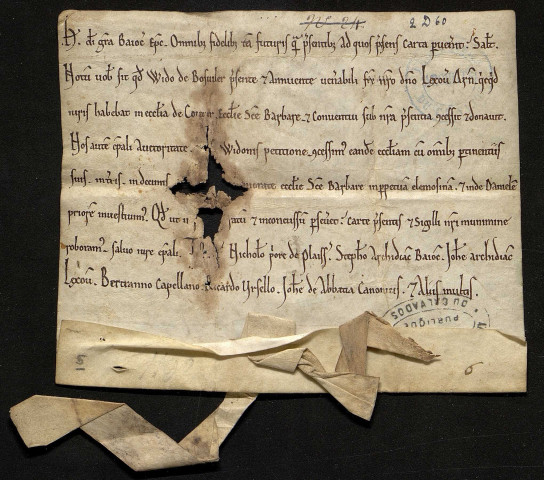 2 D 60
H. di gra Baioc Epc. Omnibus fidelib tam futuris qm psentibus ad quos psens Carta puenerit. Salt.
Notu uob sit qd Wido de psente & Annuente uenabili fre nro dno Lexou Arn. qcqd
iuris habebat in ecclia de ecclie Sce Barbare & Conuentui sub nra psentia gcessit & donauit.
Nos aute epali Auctoritate Widonis petitione gcessim eande eccliam cu omnib ptinentiis
suis in decimis ecclie Sce Barbare in ppetua elemosina. & inde Daniele
priore inuestiuim. Qd ut & inconcussu pseueret. Carte psentis & Sigilli nri munimine
roboram. saluo iure epali. T. Nichol pore de plaiss. Stepho Archidiac Baioc. Iohe archidiac
Lexou. Bertranno Capellano. Ricardo Ursello. Iohe de Abbatia Canonicis. & Aliis multis.
PUBLIQUE
DU CALVADOS
6